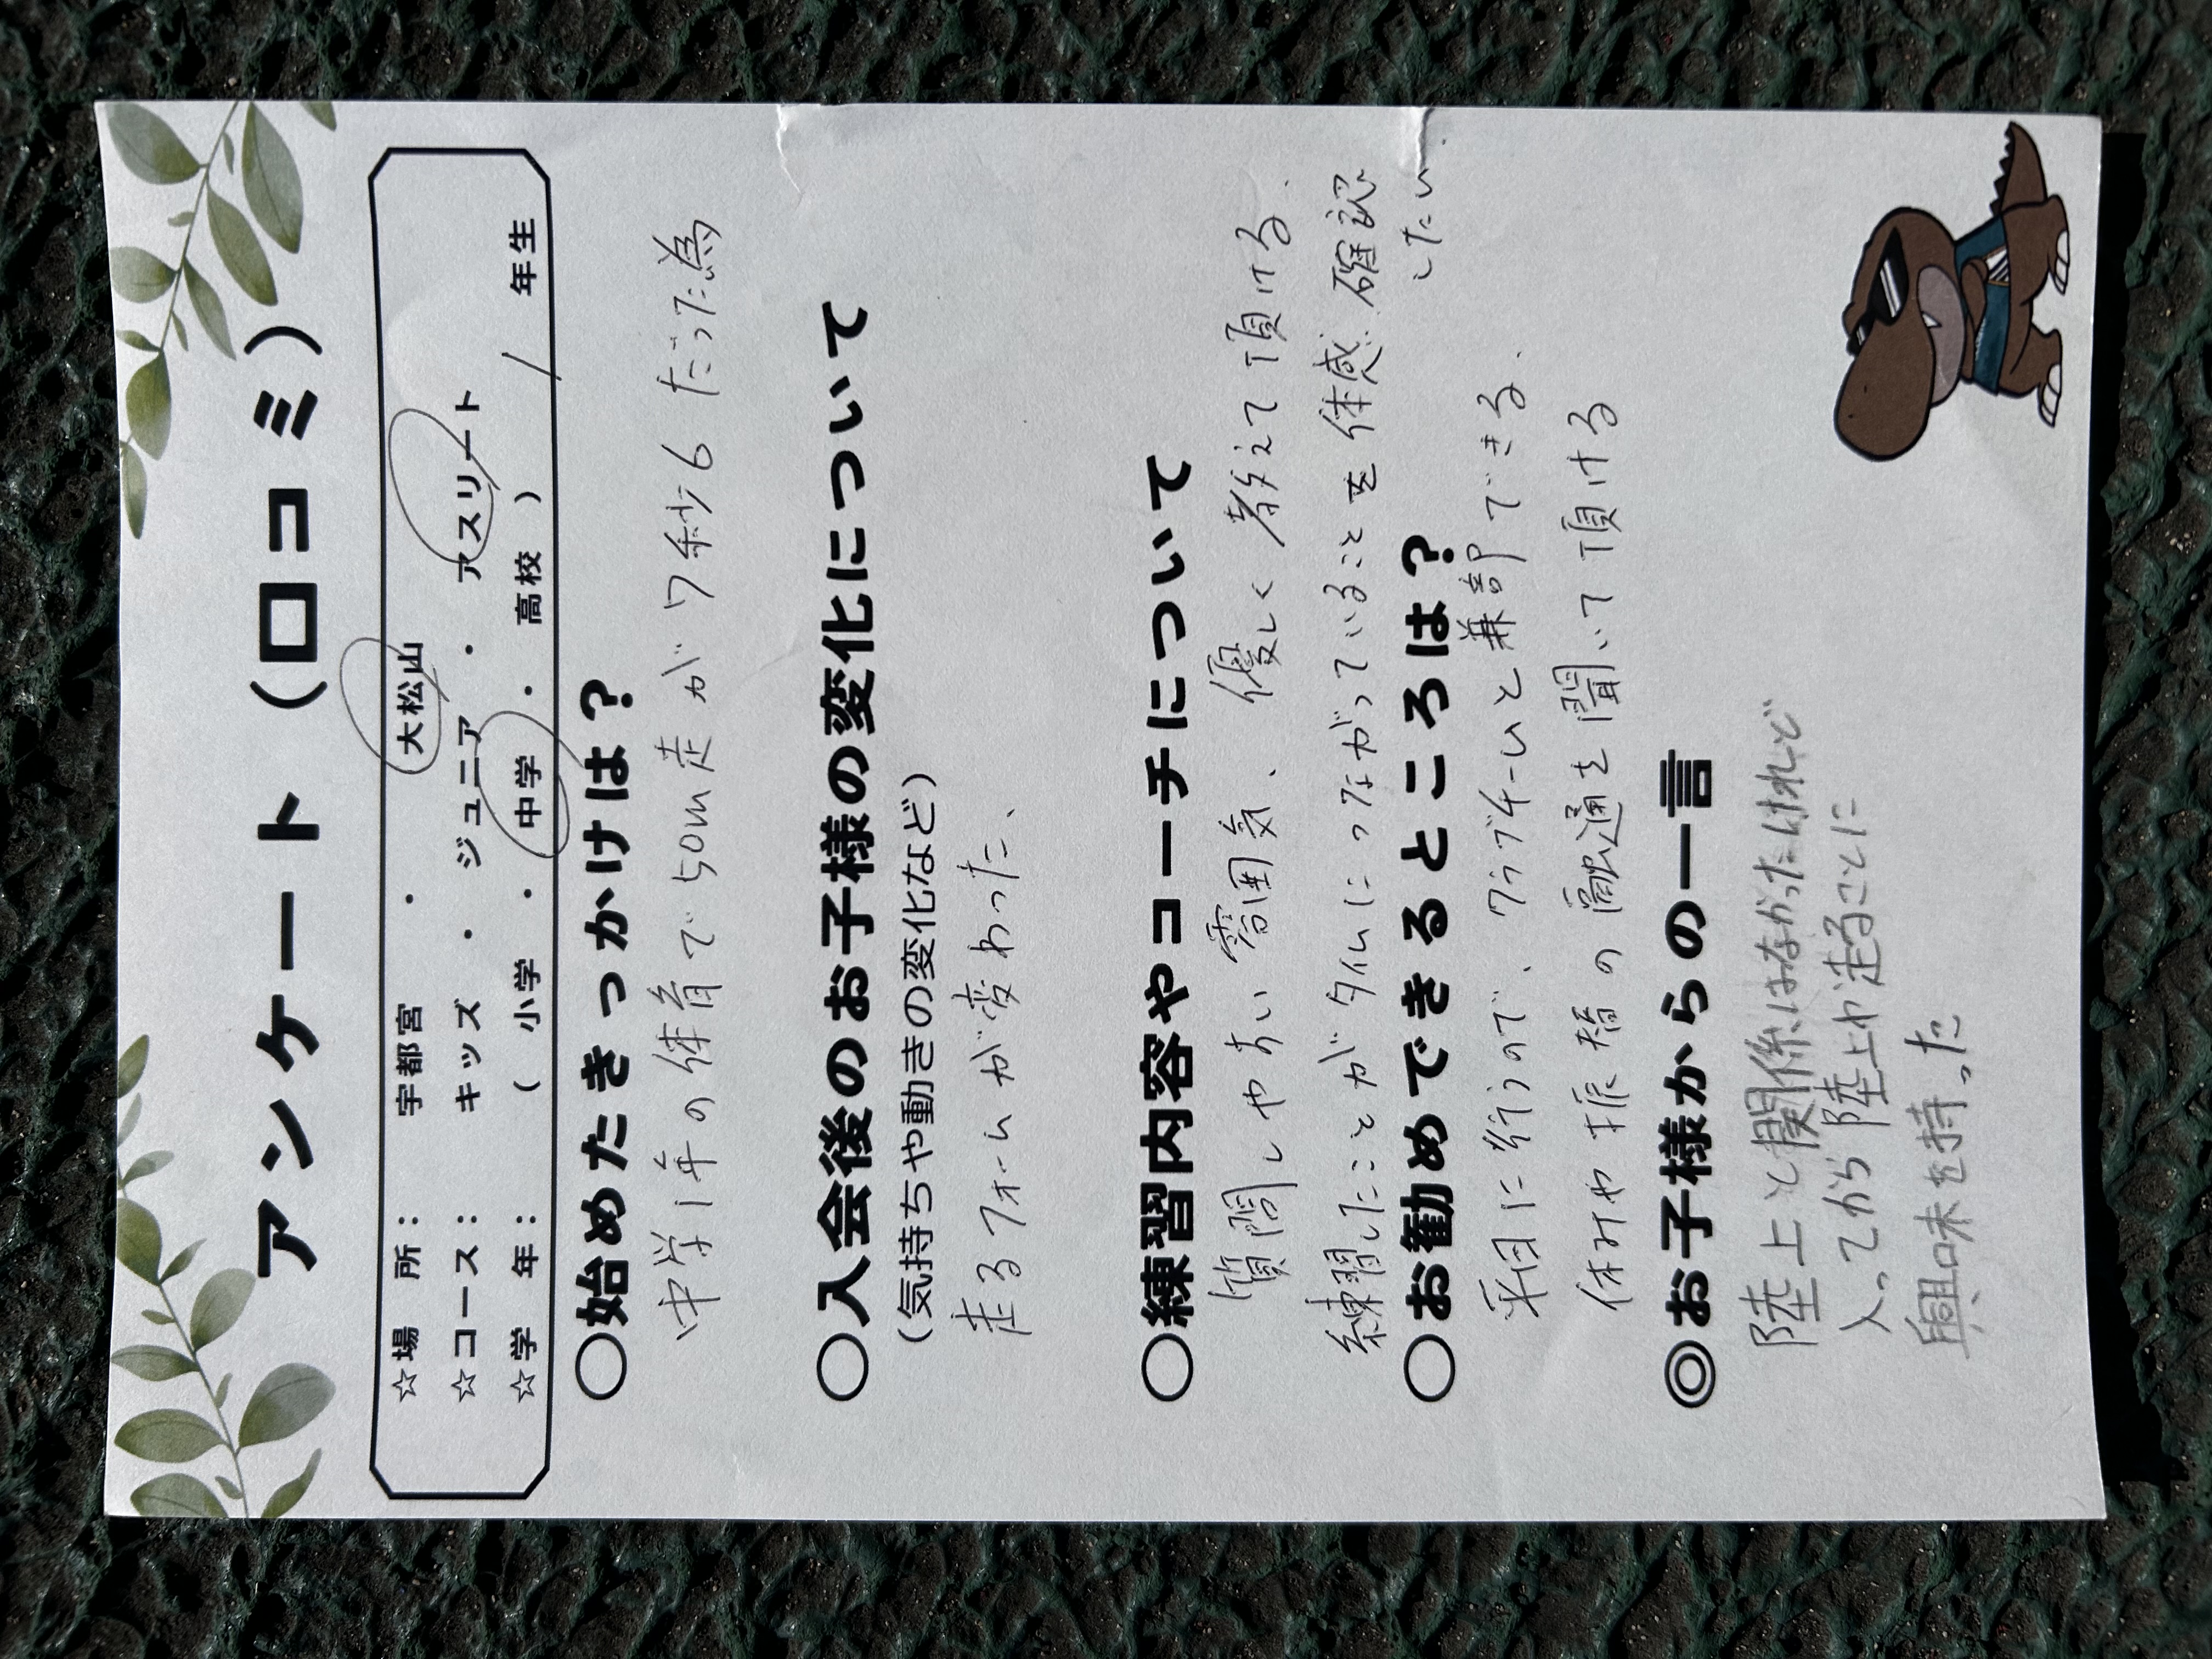 アンケート（口コミ）
☆場　所：　宇都宮　・　大松山
☆コース：　キッズ　・　ジュニア　・　アスリート
☆学　年：　（　小学　・　中学　・　高校　）　1　年生
○始めたきっかけは？
中学1年の体育で50m走が7秒6だった為
○入会後のお子様の変化について
（気持ちや動きの変化など）
走るフォームが変わった、
○練習内容やコーチについて
質問しやすい雰囲気、優しく教えて頂ける.
練習したことがタイムにつながっていることを体感.確認
したい
○お勧めできるところは？
平日に行うので、クラブチームと兼部できる.
休みや振替の融通を聞いて頂ける
◎お子様からの一言
陸上と関係はなかったけれど
入ってから陸上や走ることに
興味を持った